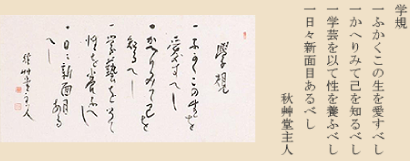 学規
一ふかくこの生を愛すべし
一かへりみて己を知るべし
一学芸を以て性を養ふべし
一日々新面目あるべし
秋艸堂主人
學規
一ふかくこの生を
愛すへし
一かへりみて己を
知るへし
一学藝を以て
性を養ふへし
一日々新面目ある
へし
秋艸堂主人